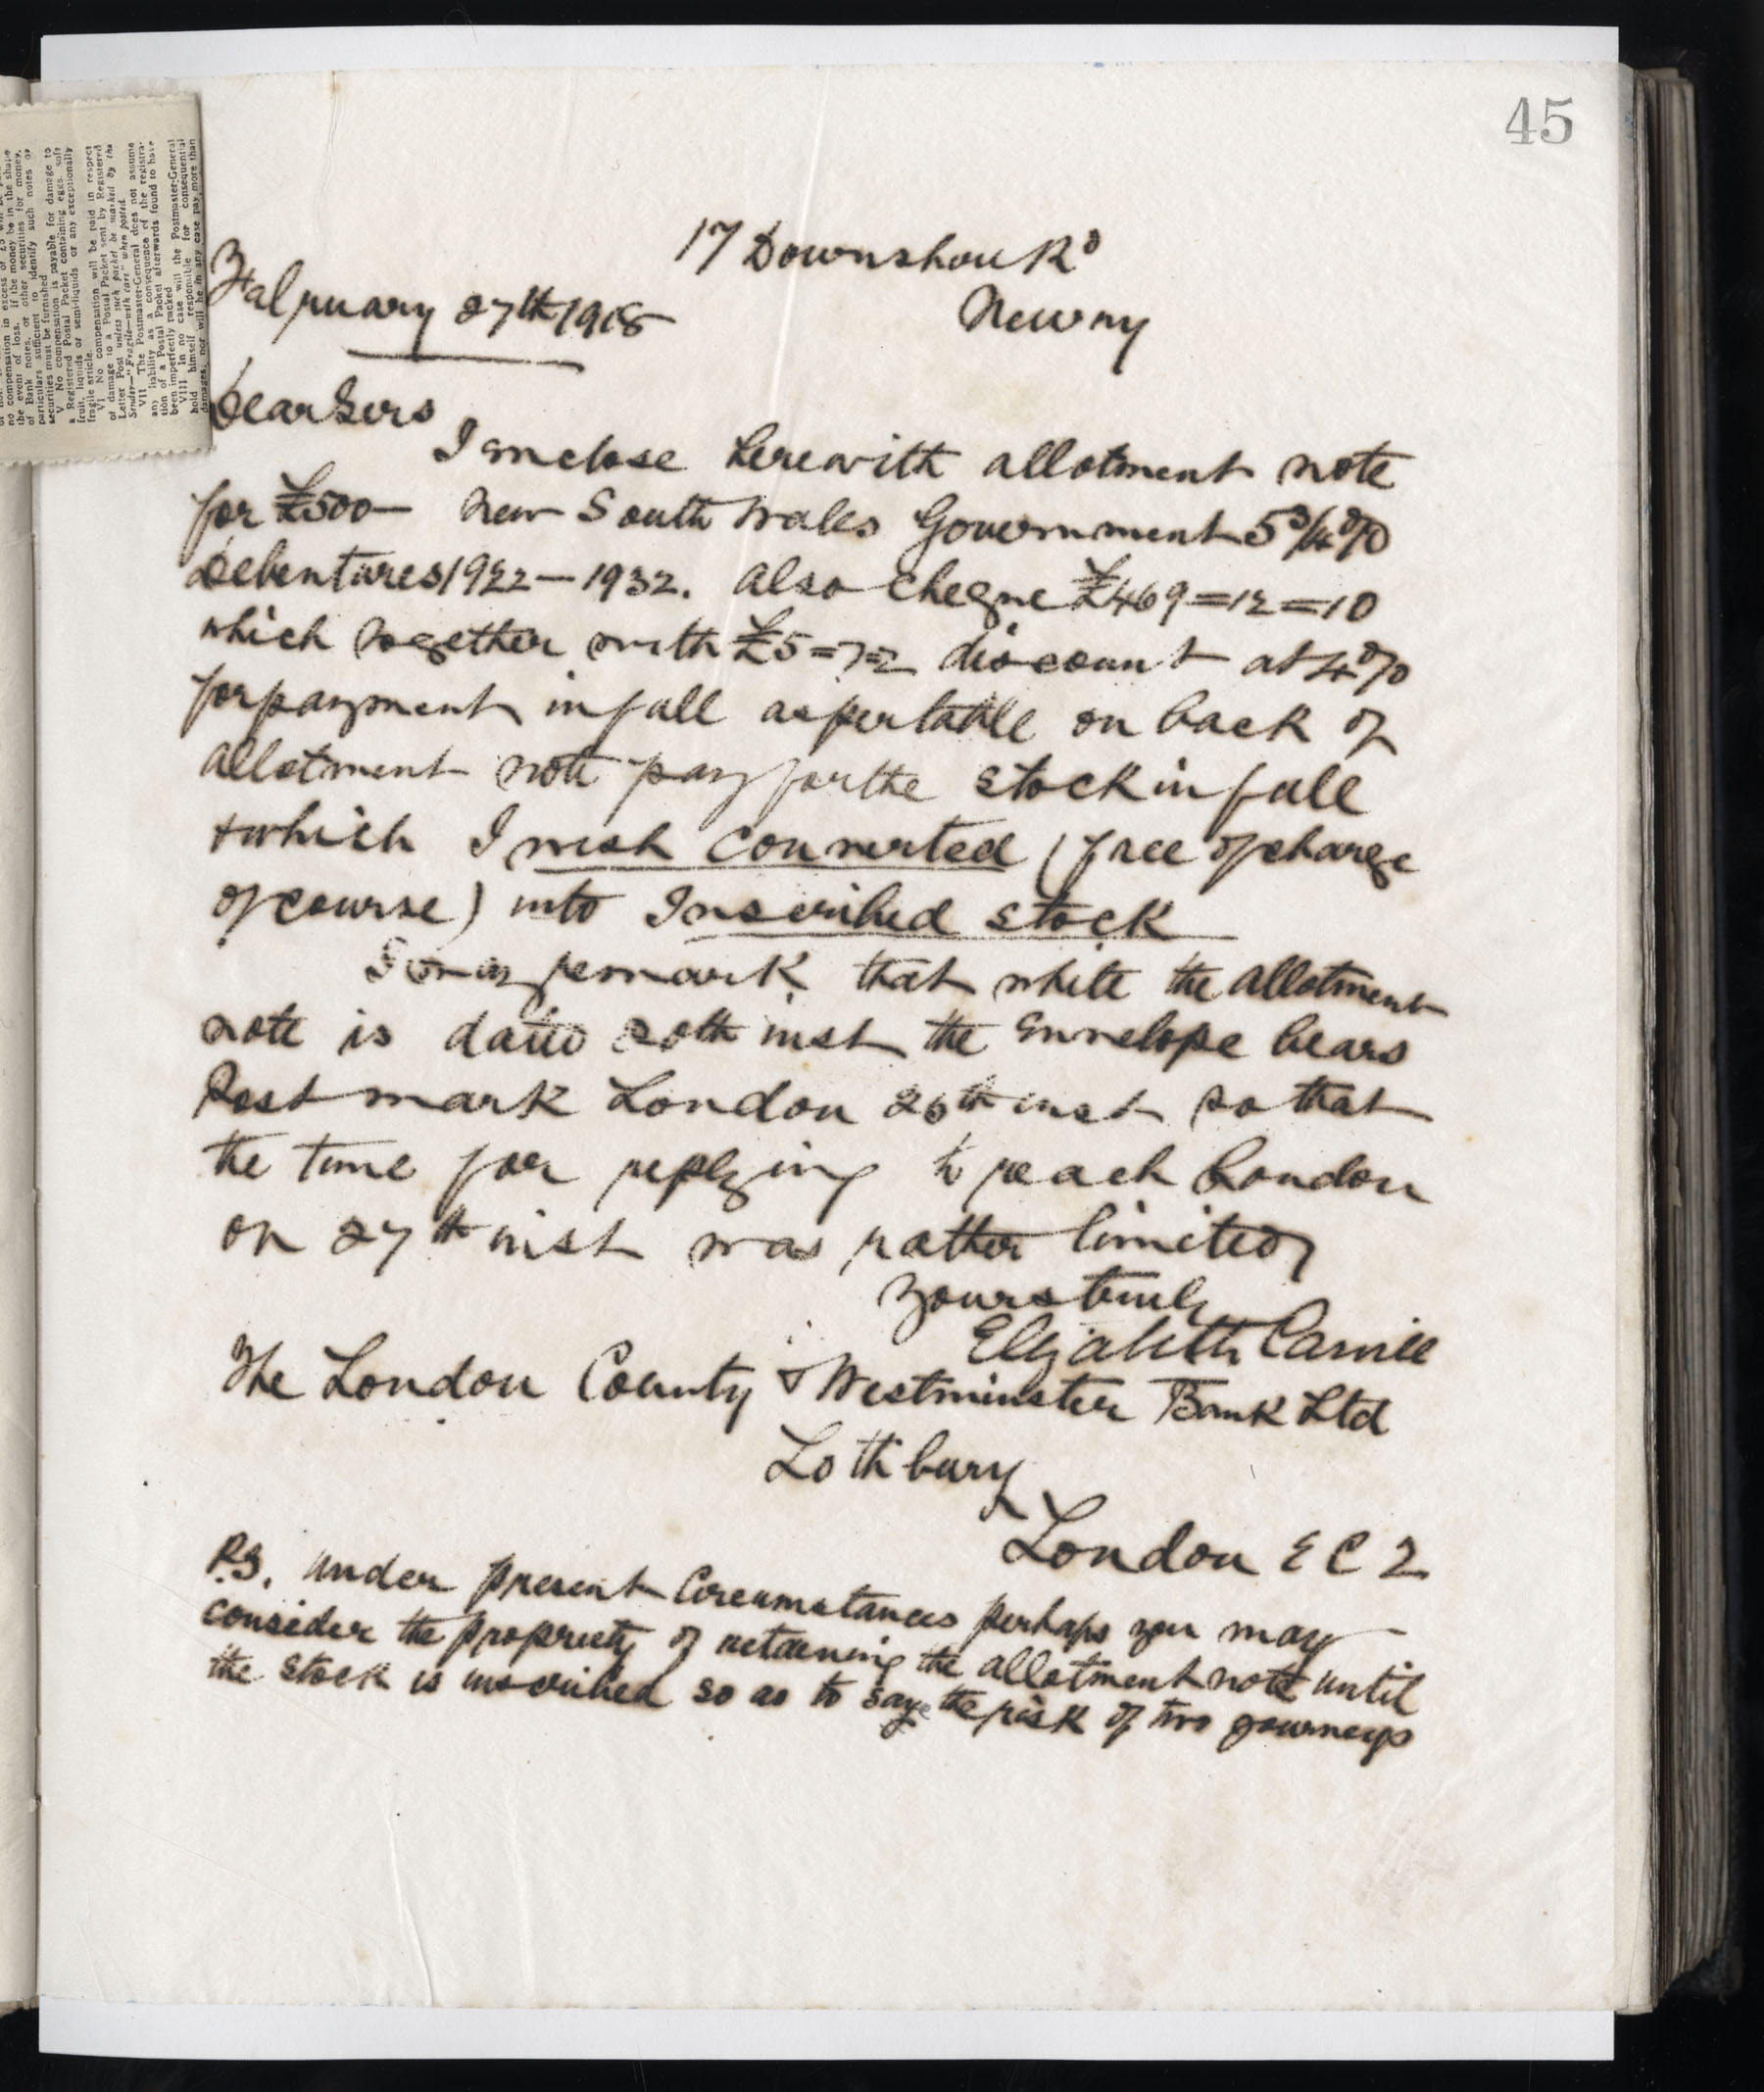 45
no compensation in excess of £5 will be
the event of loss, if the money be in the shape
of Bank notes, or other securities for money,
particulars sufficient to identify such notes or
securities must be furnished
V No compensation is payable for damage to
a Registered Postal Packet containing eggs, soft
fruit, liquids or semi-liquids or any exceptionally
fragile article.
VI No compensation will be paid in respect
of damage to a Postal Packet sent by Registered
Letter Post unless such packet be marked by the
Sender—"Fragile—with care" when posted.
VII The Postmaster-General does not assume
any liability as a consequence of the registra-
tion of a Postal Packet afterwards found to have
been imperfectly packed
VIII In no case will the Postmaster-General
hold himself responsible for consequential
damages, nor will he in any case pay more than
17 Downshou Rd
Newry
February 27th 1918
Dear Sirs
I enclose herewith allotment note
for £500 — New South Wales Government 5 3/4 %
Debentures 1922 — 1932. Also Cheque £469=12=10
which together with £5=7=2 discount at 4%
for payment in full as per table on back of
allotment note pay for the stock in full
& which I wish converted (free of charge
of course) into Inscribed stock
I may remark that while the allotment
note is dated 20th inst the Envelope bears
Post mark London 26th inst so that
the time for replying to reach London
on 27th inst was rather limited
Yours truly
Elizabeth Carvill
The London County & Westminster Bank Ltd
Lothbury
London E C 2
P.S. Under present Circumstances perhaps you may
consider the propriety of retaining the allotment note until
the stock is inscribed so as to save the risk of two journeys